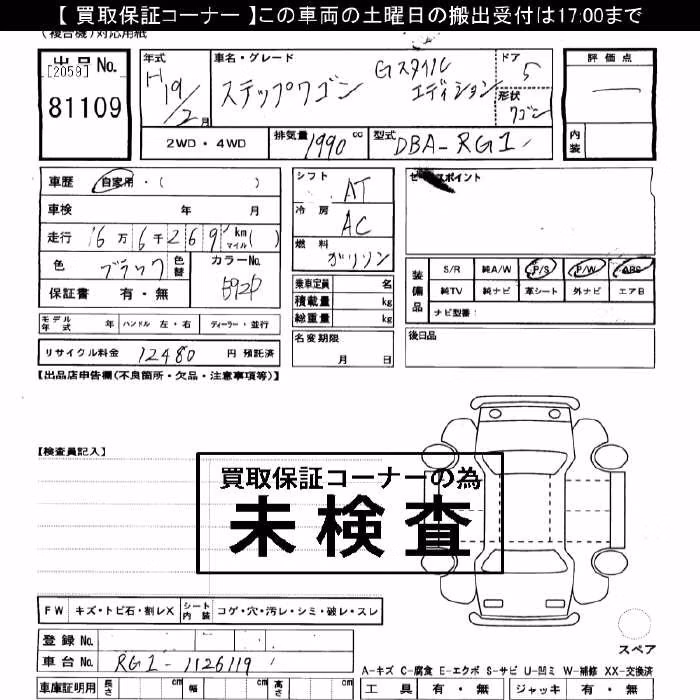 【 買取保証コーナー 】この車両の土曜日の搬出受付は17:00まで
(複合機)対応用紙
出品 No.
[2059]
81109
年式
H19/2月
車名・グレード
ステップワゴン Gスタイル エディション
ドア
5
形状
ワゴン
評価点
内装
2WD・4WD
排気量 1990 cc
型式 DBA-RG1
車歴 自家用・( )
車検 年 月
走行 16万6千269 km マイル( )
色 ブラック 色替
カラーNo. B92P
保証書 有・無
シフト AT
冷房 AC
燃料 ガソリン
乗車定員 名
積載量 kg
総重量 kg
名変期限
月 日
セールスポイント
装備品
S/R 純A/W P/S P/W ABS
純TV 純ナビ 革シート 外ナビ エアB
ナビ型番:
後日品
モデル年式 年 ハンドル 左・右 ディーラー・並行
リサイクル料金 12480 円 預託済
【出品店申告欄(不良箇所・欠品・注意事項等)】
【検査員記入】
買取保証コーナーの為
未検査
FW キズ・トビ石・割レX シート内装 コゲ・穴・汚レ・シミ・破レ・スレ
登録 No.
車台 No. RG1-1126119
車庫証明用 長さ cm 幅 cm 高さ cm
スペア
A-キズ C-腐食 E-エクボ S-サビ U-凹ミ W-補修 XX-交換済
工具 有・無 ジャッキ 有・無